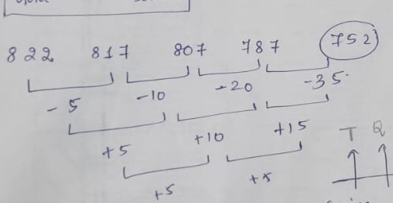 822 817 807 787 752
-5 -10 -20 -35
+5 +10 +15
+5 +5
T Q